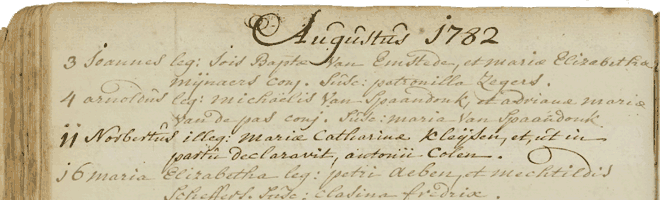 Augustus 1782
3 Joannes leg: Jois Baptæ Van Emstede, et mariæ Elizabetha
mijnaers conj. Susc: petronilla Zegers.
4 arnoldus leg: michaëlis Van Spaandonk, et adrianæ mariæ
Van de pas conj. Susc: maria Van Spaandonk
11 Norbertus illeg: mariæ Catharinæ Kleijsen, et, ut in
partu declaravit, antonii Colen.
16 maria Elizabetha leg: petri Aeben, et mechtildis
Scheffers. Susc: clasina fredrix.